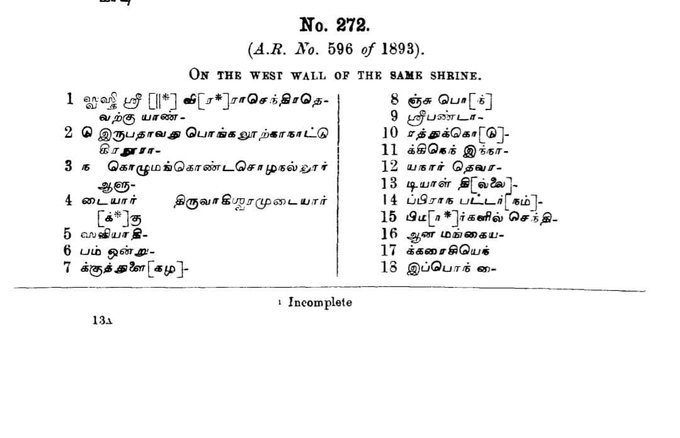 No. 272.
(A.R. No. 596 of 1893).
ON THE WEST WALL OF THE SAME SHRINE.
1 ஸ்வஸ்தி ஸ்ரீ [||*] வி[ர*]ராசெந்திரதெ-
வற்கு யாண்-
2 டு இருபதாவது பொங்கலூற்காநாட்டு
கிரனூரா-
3 ந கொழுமங்கொண்டசொழநல்லூர்
ஆளு-
4 டையார் திருவாகிஸ்வரமுடையார்
[க்*]கு
5 ஸந்தியாதி-
6 பம் ஒன்று-
7 க்குத்துளை[கழ]-
8 ஞ்சு பொ[ந்]
9 ஸ்ரீபண்டா-
10 ரத்துக்கொ[டு]-
11 க்கிகெந் இந்நா-
12 யகார் தெவர-
13 டியாள் தி[ல்லை]-
14 ப்பிராந பட்டர்[நம்]-
15 பிமா[ர*]ர்களில் செந்தி-
16 ஆன மங்கைய-
17 க்கரைசியெந்
18 இப்பொந் வை-
1 Incomplete
13A